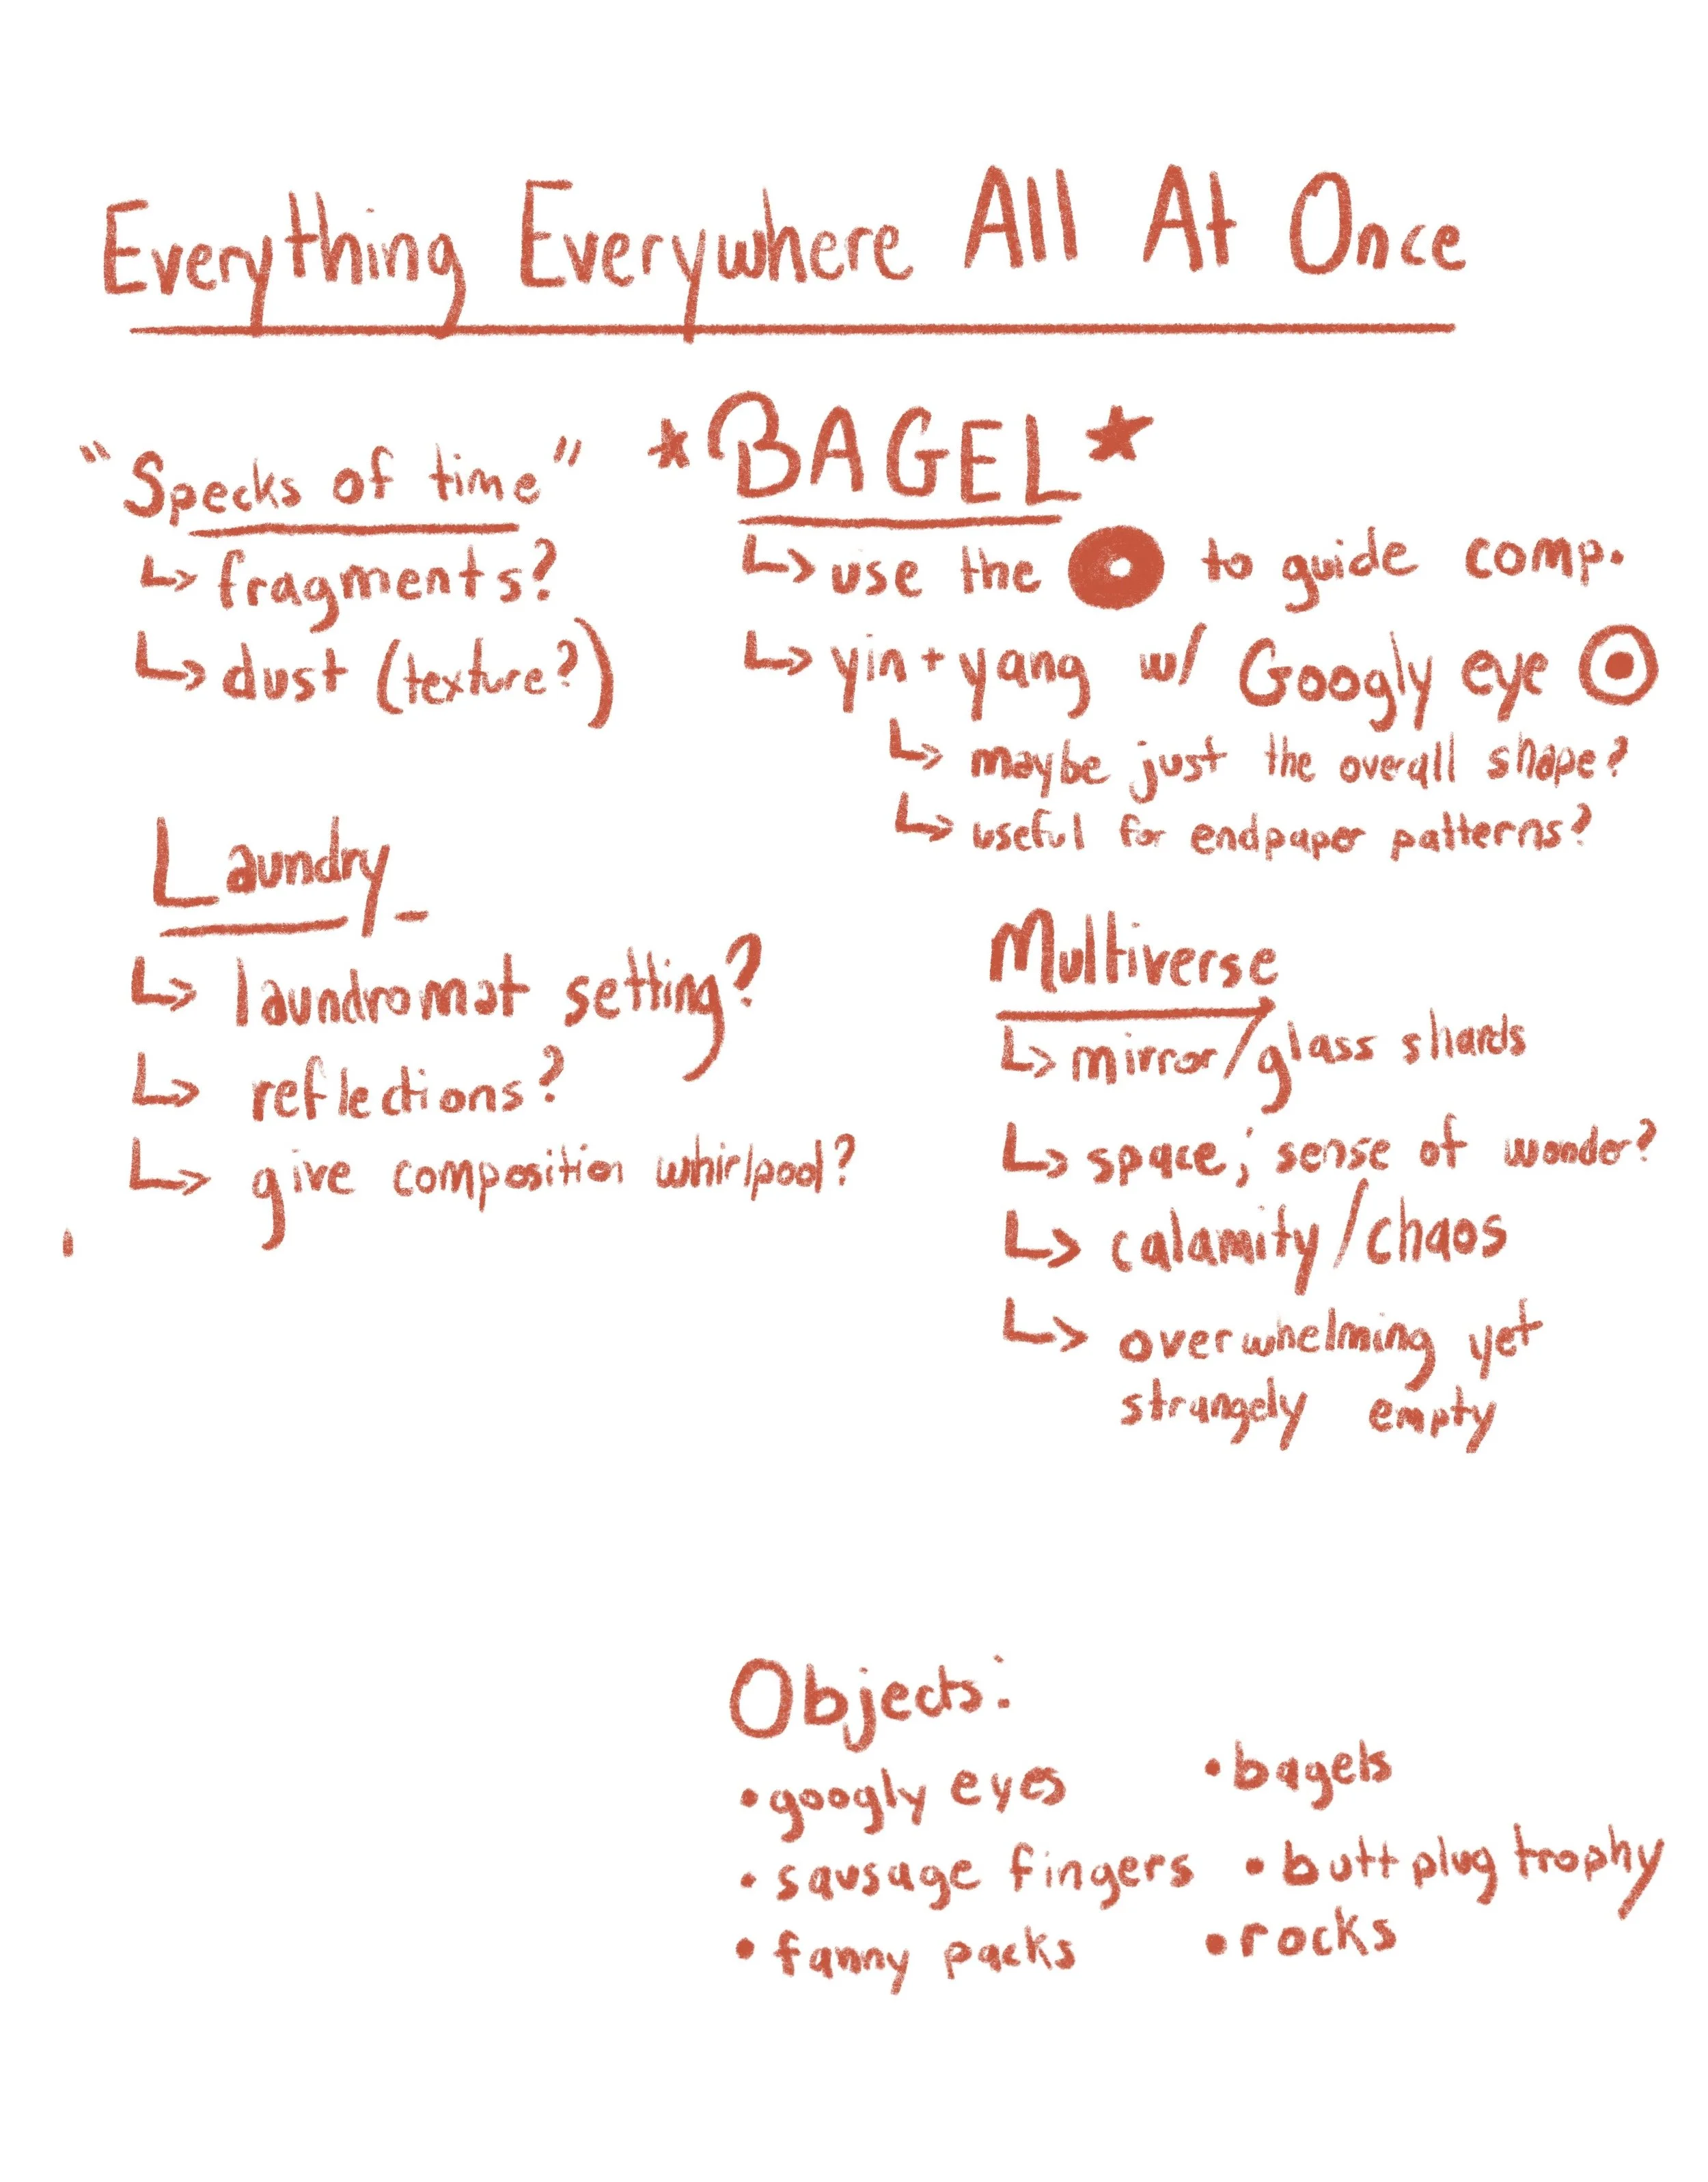 Everything Everywhere All At Once
"Specks of time"
↳ fragments?
↳ dust (texture?)
*BAGEL*
↳ use the to guide comp.
↳ yin + yang w/ Googly eye
↳ maybe just the overall shape?
↳ useful for endpaper patterns?
Laundry
↳ laundromat setting?
↳ reflections?
↳ give composition whirlpool?
Multiverse
↳ mirror/glass shards
↳ space; sense of wonder?
↳ calamity/chaos
↳ overwhelming yet
strangely empty
Objects:
• googly eyes
• sausage fingers
• fanny packs
• bagels
• butt plug trophy
• rocks